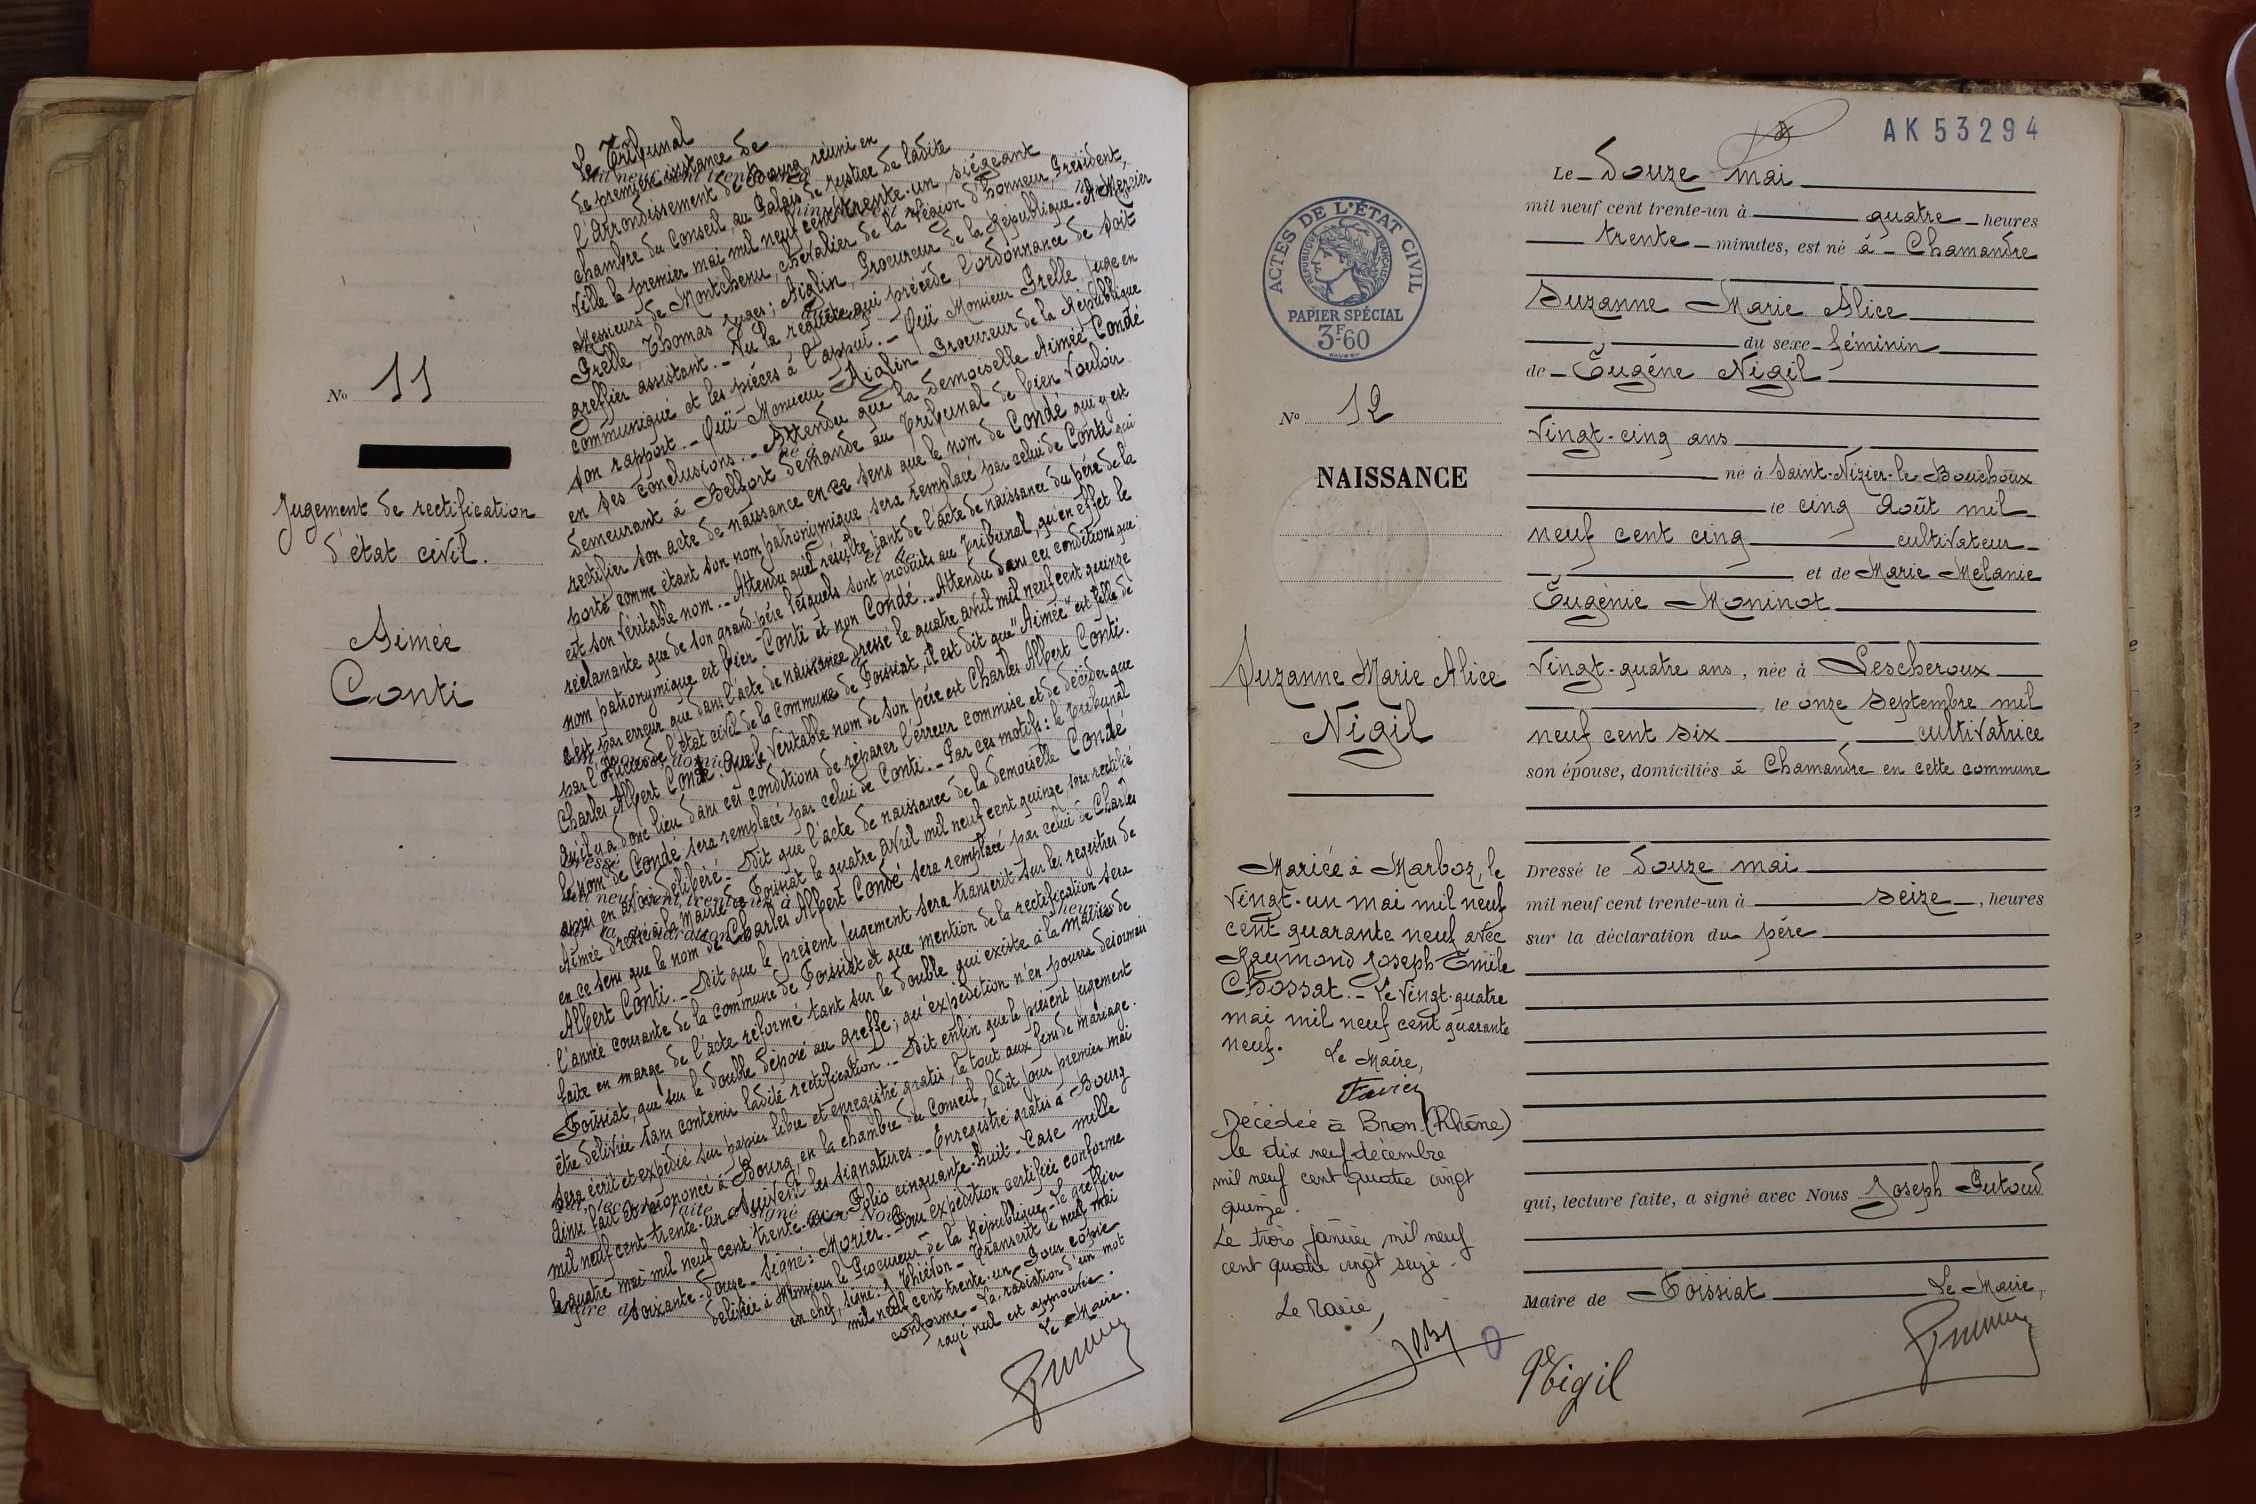 Nº 11
Jugement de rectification
d'état civil.
Aimée
Conti
Le Tribunal
de première instance de
l'Arrondissement de Bourg, réuni en
chambre du Conseil, au Palais de Justice de ladite
Ville le premier mai mil neuf cent trente-un, siégeant
Messieurs de Montchenu, chevalier de la légion d'honneur, Président,
Grelle, Thomas juges; Aiglin, Procureur de la République. A. Mercier
greffier assistant. - Vu la requête qui précède, l'ordonnance de soit
communiqué et les pièces à l'appui. - Ouï Monsieur Grelle, juge en
son rapport. - Ouï Monsieur Aiglin Procureur de la République
en ses conclusions. - Attendu que la demoiselle Aimée Condé
demeurant à Belfort demande au Tribunal de bien vouloir
rectifier son acte de naissance en ce sens que le nom de Condé qui y est
porté comme étant son nom patronymique, sera remplacé par celui de Conti qui
est son véritable nom. - Attendu qu'il résulte tant de l'acte de naissance du père de la
réclamante que de son grand-père lesquels sont produits au Tribunal, qu'en effet le
nom patronymique est bien Conti et non Condé. - Attendu dans ces conditions que
c'est par erreur que dans l'acte de naissance dressé le quatre avril mil neuf cent quinze
par l'officier de l'état civil de la commune de Foissiat, il est dit que "Aimée" est fille de
Charles Albert Condé. Que le véritable nom de son père est Charles Albert Conti.
Qu'il y a donc lieu dans ces conditions de réparer l'erreur commise et de décider que
le nom de Condé sera remplacé par celui de Conti. - Par ces motifs: le Tribunal
après en avoir délibéré. - Dit que l'acte de naissance de la demoiselle Condé
Aimée dressé à la mairie de Foissiat le quatre avril mil neuf cent quinze, sera rectifié
en ce sens que le nom de Charles Albert Condé sera remplacé par celui de Charles
Albert Conti. - Dit que le présent jugement sera transcrit sur les registres de
l'année courante de la commune de Foissiat et que mention de la rectification sera
faite en marge de l'acte réformé tant sur le double qui existe à la mairie de
Foissiat, que sur le double déposé au greffe; qu'expédition n'en pourra désormais
être délivrée sans contenir ladite rectification. - Dit enfin que le présent jugement
sera écrit et expédié sur papier libre et enregistré gratis, le tout aux fins de mariage.
Ainsi fait et prononcé à Bourg, en la chambre du Conseil, ledit jour premier mai
mil neuf cent trente-un. Suivent les signatures. - Enregistré gratis à Bourg
le quatre mai mil neuf cent trente-un Folio cinquante-huit - Case mille
soixante-douze - Signé: Morier. Pour expédition certifiée conforme
délivrée à Monsieur le Procureur de la République - Le greffier
en chef, signé: J. Thiévon - Transcrit le neuf mai
mil neuf cent trente-un - Pour copie
conforme - La radiation d'un mot
rayé nul est approuvée.
Le Maire.
AK 53294
ACTES DE L'ÉTAT CIVIL
RÉPUBLIQUE FRANÇAISE
PAPIER SPÉCIAL
3F.60
Nº 12
NAISSANCE
Suzanne Marie Alice
Nigil
Mariée à Marboz, le
vingt-un mai mil neuf
cent quarante neuf avec
Raymond Joseph Emile
Chossat. - Le vingt-quatre
mai mil neuf cent quarante
neuf.
Le Maire,
Décédée à Bron (Rhône)
le dix neuf décembre
mil neuf cent quatre vingt
quinze.
Le trois janvier mil neuf
cent quatre vingt seize.
Le Maire,
Le douze mai
mil neuf cent trente-un à quatre heures
trente minutes, est né à Chamandre
Suzanne Marie Alice
du sexe féminin
de Eugène Nigil
vingt-cinq ans
né à Saint-Nizier-le-Bouchoux
le cinq Août mil
neuf cent cinq cultivateur
et de Marie Mélanie
Eugénie Moninot
vingt-quatre ans, née à Lescheroux
le onze Septembre mil
neuf cent six cultivatrice
son épouse, domiciliés à Chamandre en cette commune
Dressé le douze mai
mil neuf cent trente-un à seize, heures
sur la déclaration du père
qui, lecture faite, a signé avec Nous Joseph Putoud
Maire de Foissiat Le Maire,
Nigil